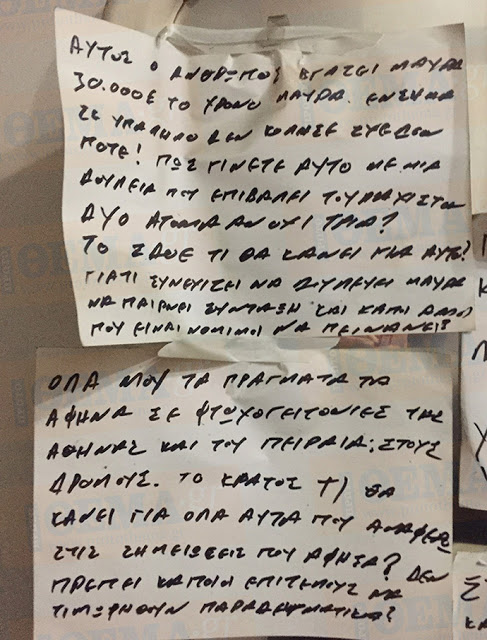 ΑΥΤΟΣ Ο ΑΝΘΡΩΠΟΣ ΒΓΑΖΕΙ ΜΑΥΡΑ
30.000€ ΤΟ ΧΡΟΝΟ ΜΑΥΡΑ. ΕΝΣΗΜΑ
ΣΕ ΥΠΑΛΗΛΟ ΔΕΝ ΚΟΛΗΣΕ ΣΧΕΔΟΝ
ΠΟΤΕ! ΠΩΣ ΓΙΝΕΤΕ ΑΥΤΟ ΜΕ ΜΙΑ
ΔΟΥΛΕΙΑ ΠΟΥ ΕΠΙΒΑΛΕΙ ΤΟΥΛΑΧΙΣΤΟΝ
ΔΥΟ ΑΤΟΜΑ ΑΝ ΟΥΧΙ ΤΡΙΑ?
ΤΟ ΣΔΟΕ ΤΙ ΘΑ ΚΑΝΕΙ ΓΙΑ ΑΥΤΟ?
ΓΙΑΤΙ ΣΥΝΕΧΙΖΕΙ ΝΑ ΔΟΥΛΕΥΕΙ ΜΑΥΡΑ
ΝΑ ΠΑΙΡΝΕΙ ΣΥΝΤΑΞΗ ΚΑΙ ΚΑΠΟΙ ΑΛΛΟΙ
ΠΟΥ ΕΙΝΑΙ ΝΟΜΙΜΟΙ ΝΑ ΠΕΙΝΑΝΕ?
ΟΛΑ ΜΟΥ ΤΑ ΠΡΑΓΜΑΤΑ ΤΑ
ΑΦΗΝΑ ΣΕ ΦΤΩΧΟΓΕΙΤΟΝΙΕΣ ΤΗΣ
ΑΘΗΝΑΣ ΚΑΙ ΤΟΥ ΠΕΙΡΑΙΑ, ΣΤΟΥΣ
ΔΡΟΜΟΥΣ. ΤΟ ΚΡΑΤΟΣ ΤΙ ΘΑ
ΚΑΝΕΙ ΓΙΑ ΟΛΑ ΑΥΤΑ ΠΟΥ ΑΝΑΦΕΡΩ
ΣΤΙΣ ΣΗΜΕΙΩΣΕΙΣ ΠΟΥ ΑΦΗΣΑ? ΔΕΝ
ΠΡΕΠΕΙ ΚΑΠΟΙΟΙ ΕΠΙΤΕΛΟΥΣ ΝΑ
ΤΙΜΩΡΗΘΟΥΝ ΠΑΡΑΔΕΙΓΜΑΤΙΚΑ?